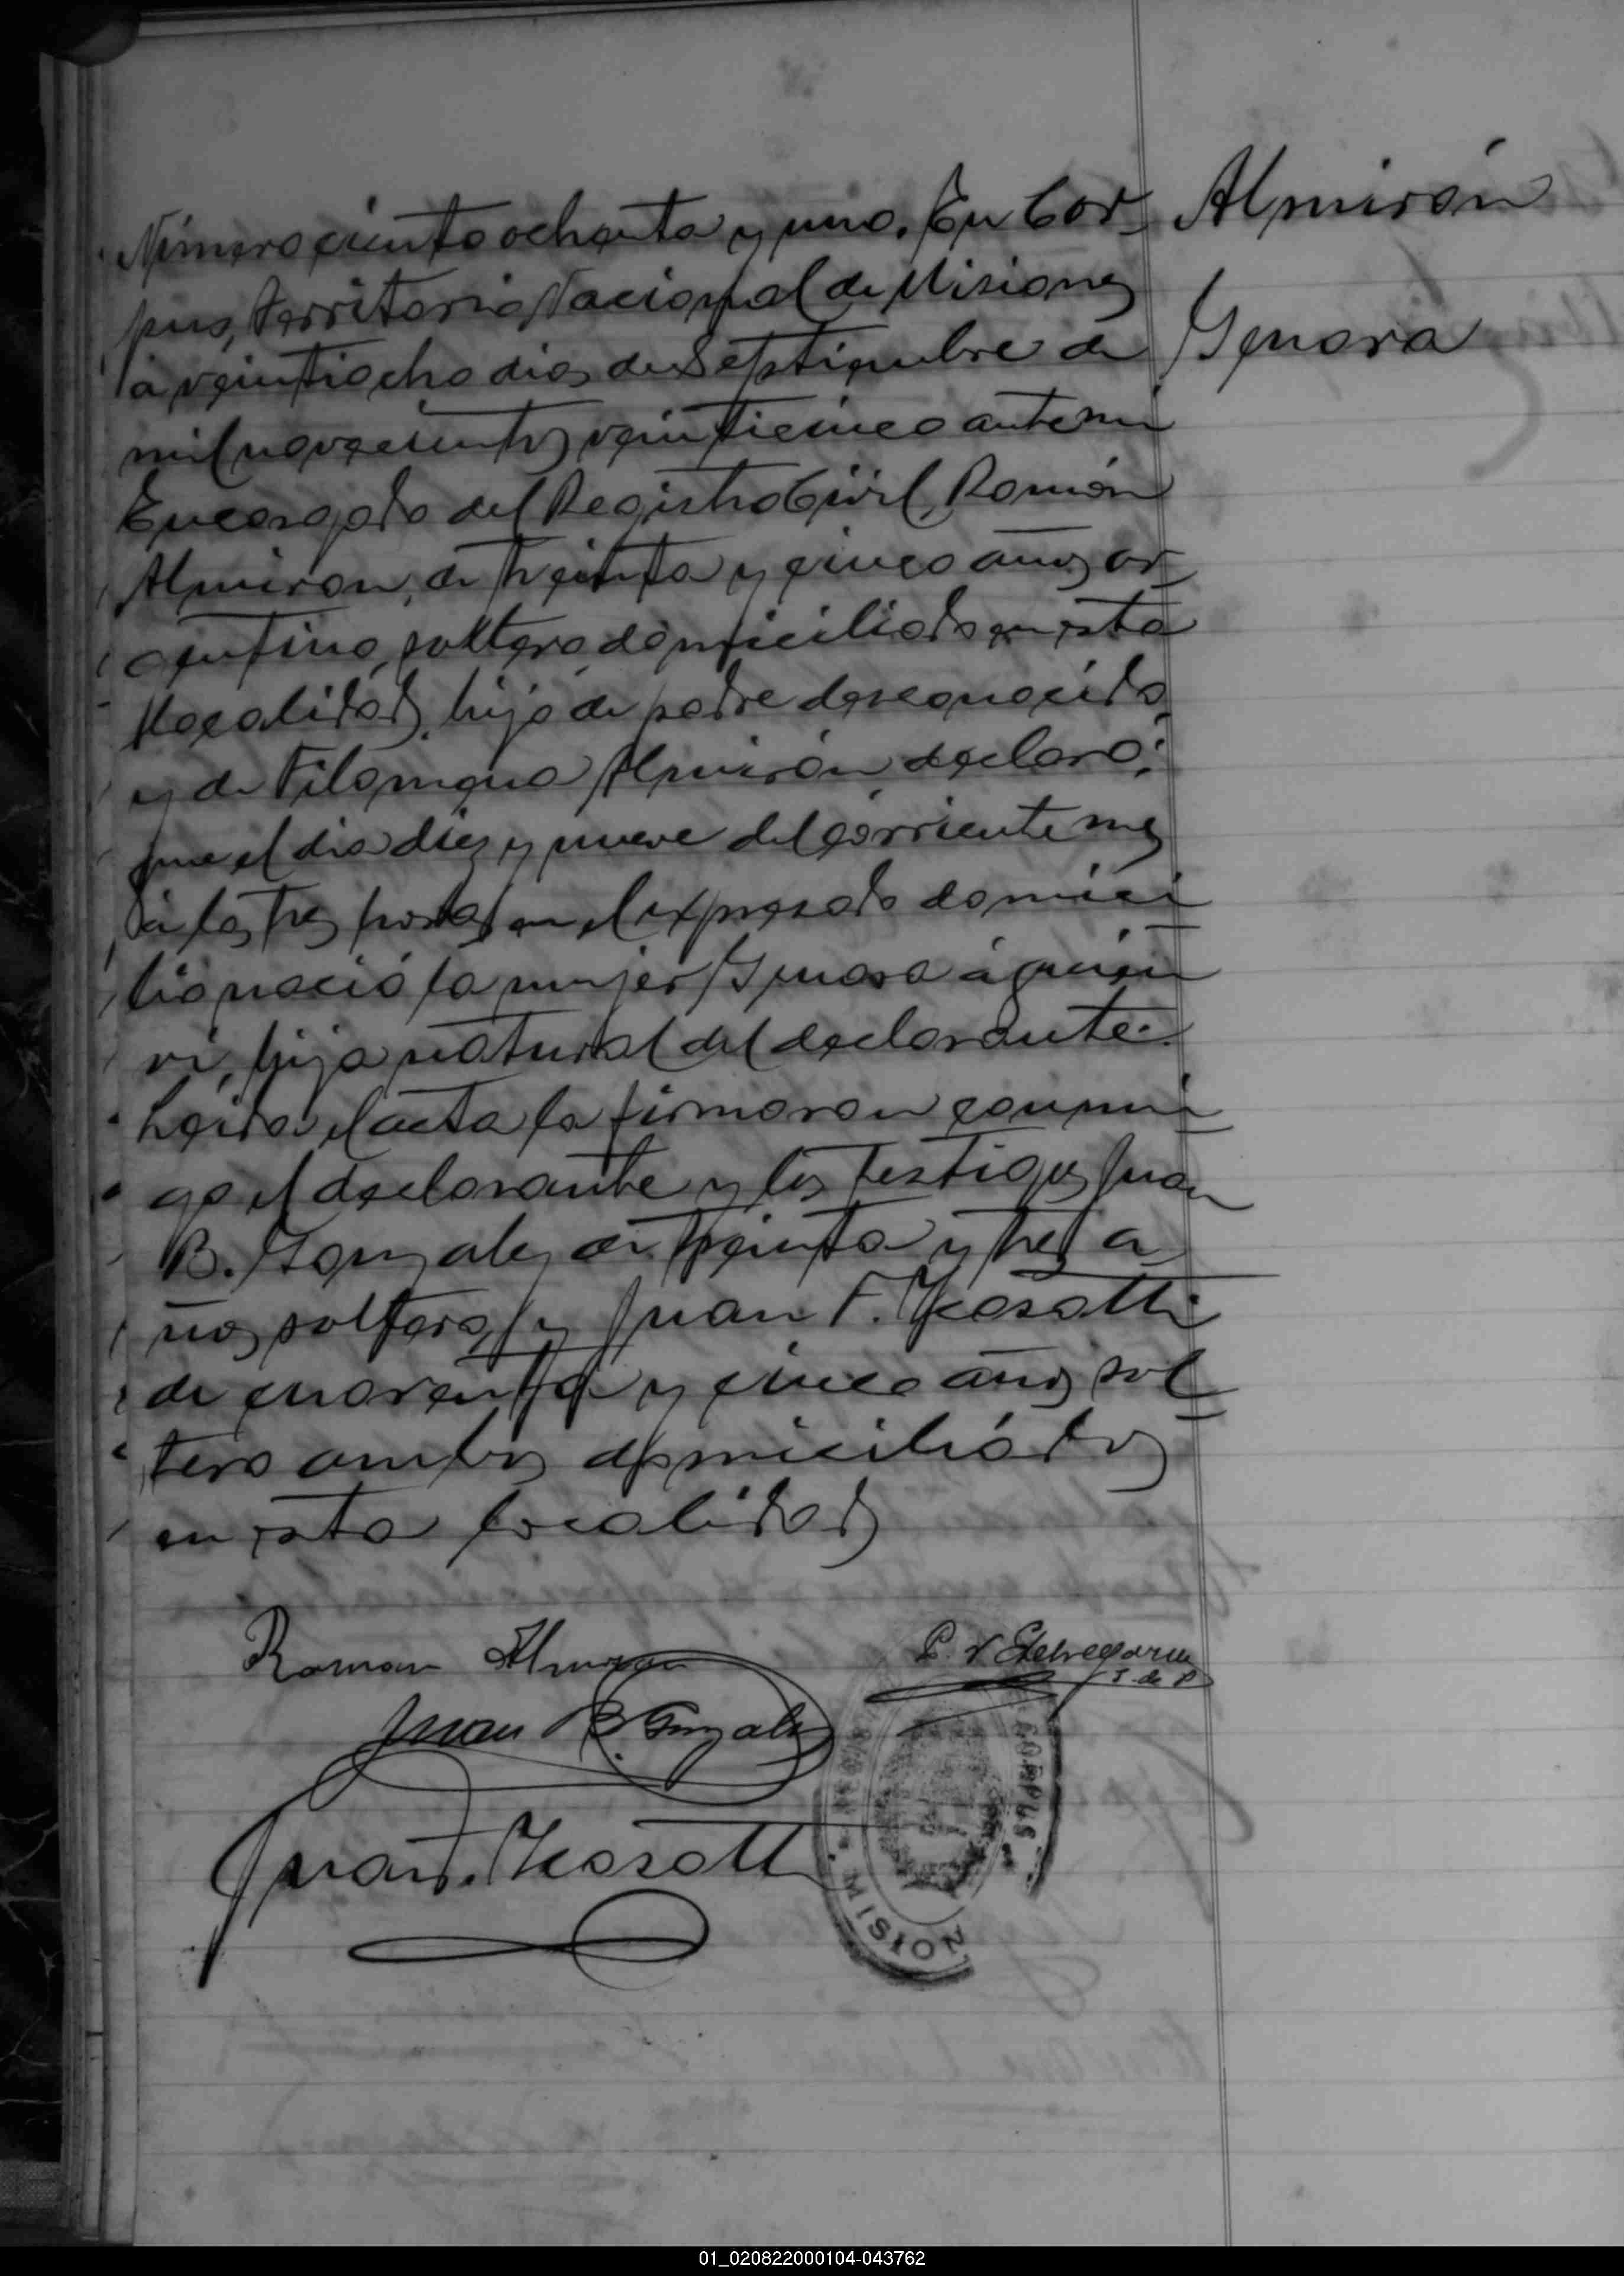 Número ciento ochenta y uno. En Cor-
pus, Territorio Nacional de Misiones
á veintiocho dias de Septiembre de
mil novecientos veinticinco ante mi
Encargado del Registro Civil, Román
Almiron, de treinta y cinco años ar-
gentino, soltero domiciliado en esta
localidad, hijo de padre desconocido
y de Filomena Almirón declaró:
que el dia diez y nueve del corriente mes
á las tres horas en el expresado domici
lio nació la mujer Genara á quien
vi, hija natural del declarante.
Leida el acta la firmaron conmi
go el declarante y los testigos Juan
B. Gonzalez de treinta y tres a
ños soltero, y Juan F. Kosatti
de cuarenta y cinco años sol
tero ambos domiciliados
en esta localidad
Almirón
Genara
Roman Almiron
P. V Etchegaray
J. de P
Juan B. Gonzalez
Juan F. Kosatti
CORPUS
MISION
01_020822000104-043762